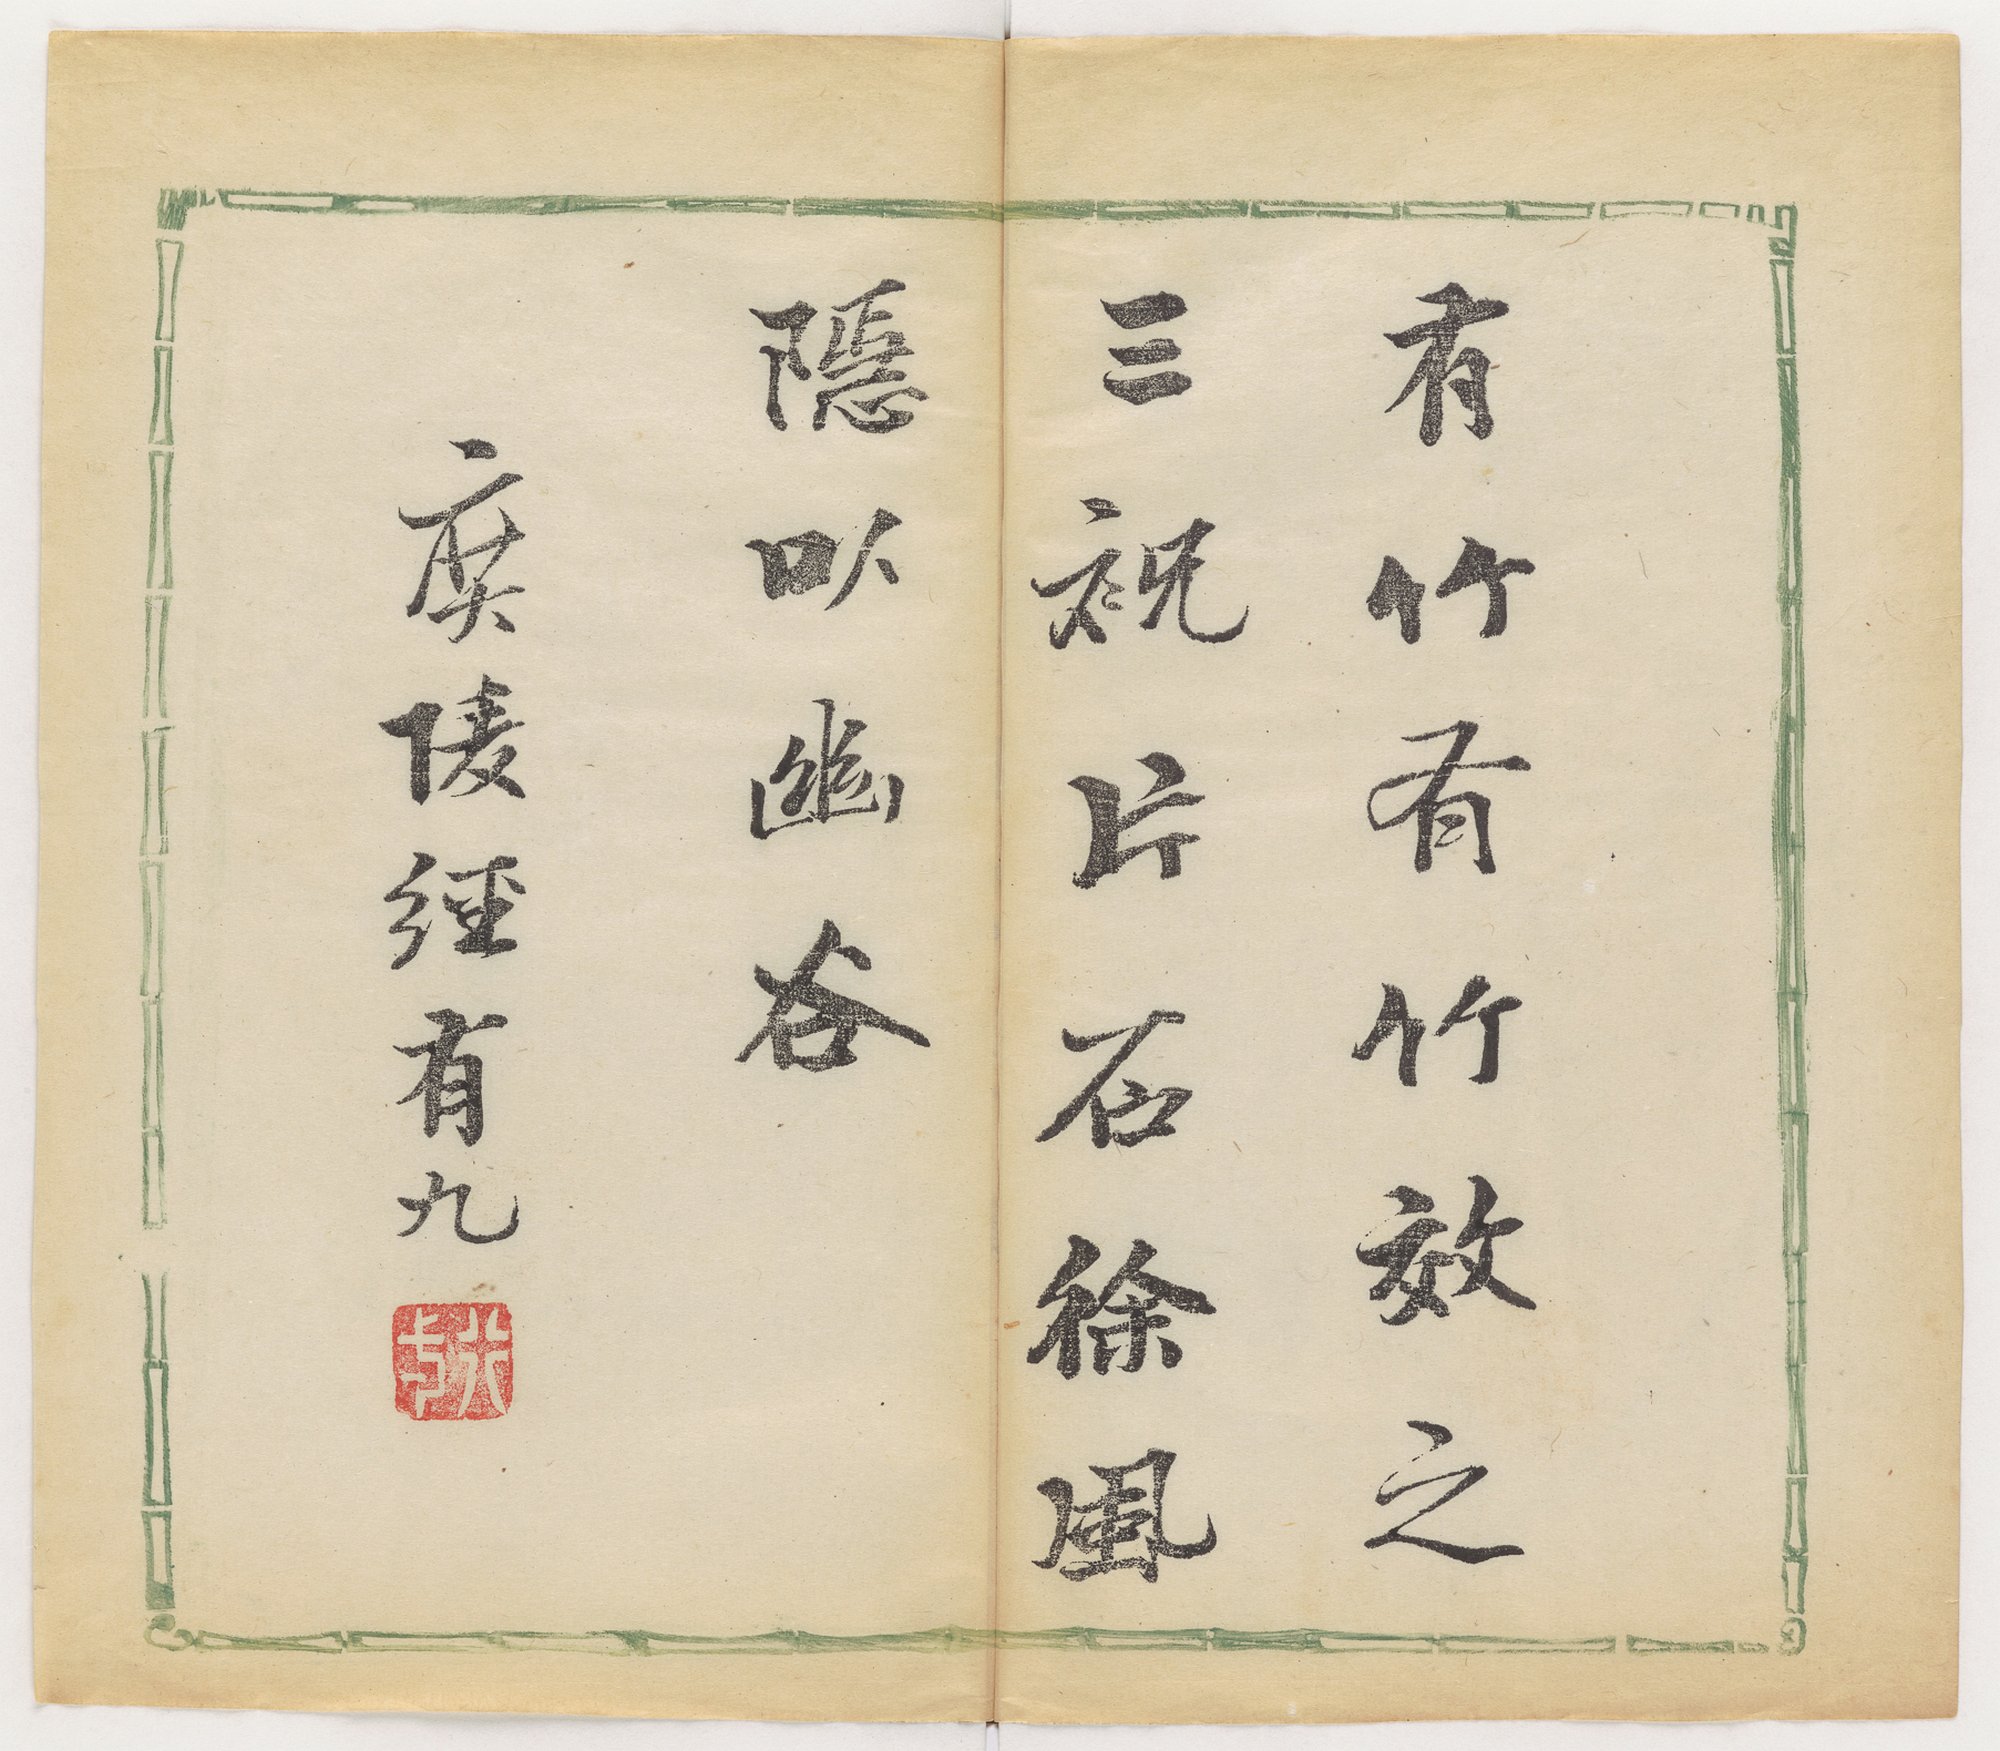 有竹有竹效之
三祝片石徐風
隱以幽谷
廣陵經有九